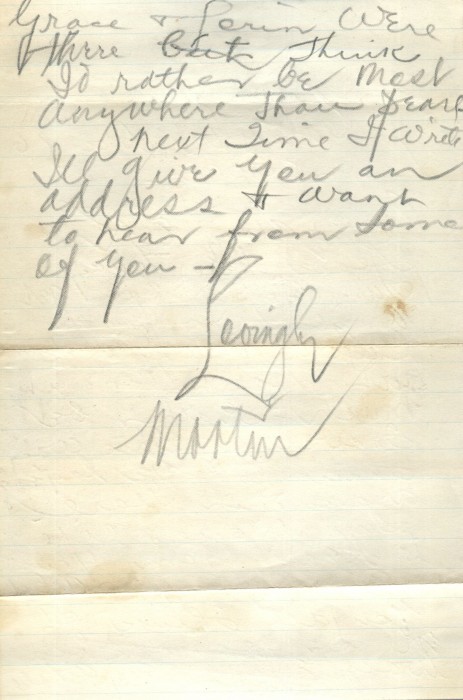 Grace & Lorin were
there but think
I'd rather be most
anywhere than
next time I write
Ill give you an
address & want
to hear from some
of you -
Lovingly
Martin